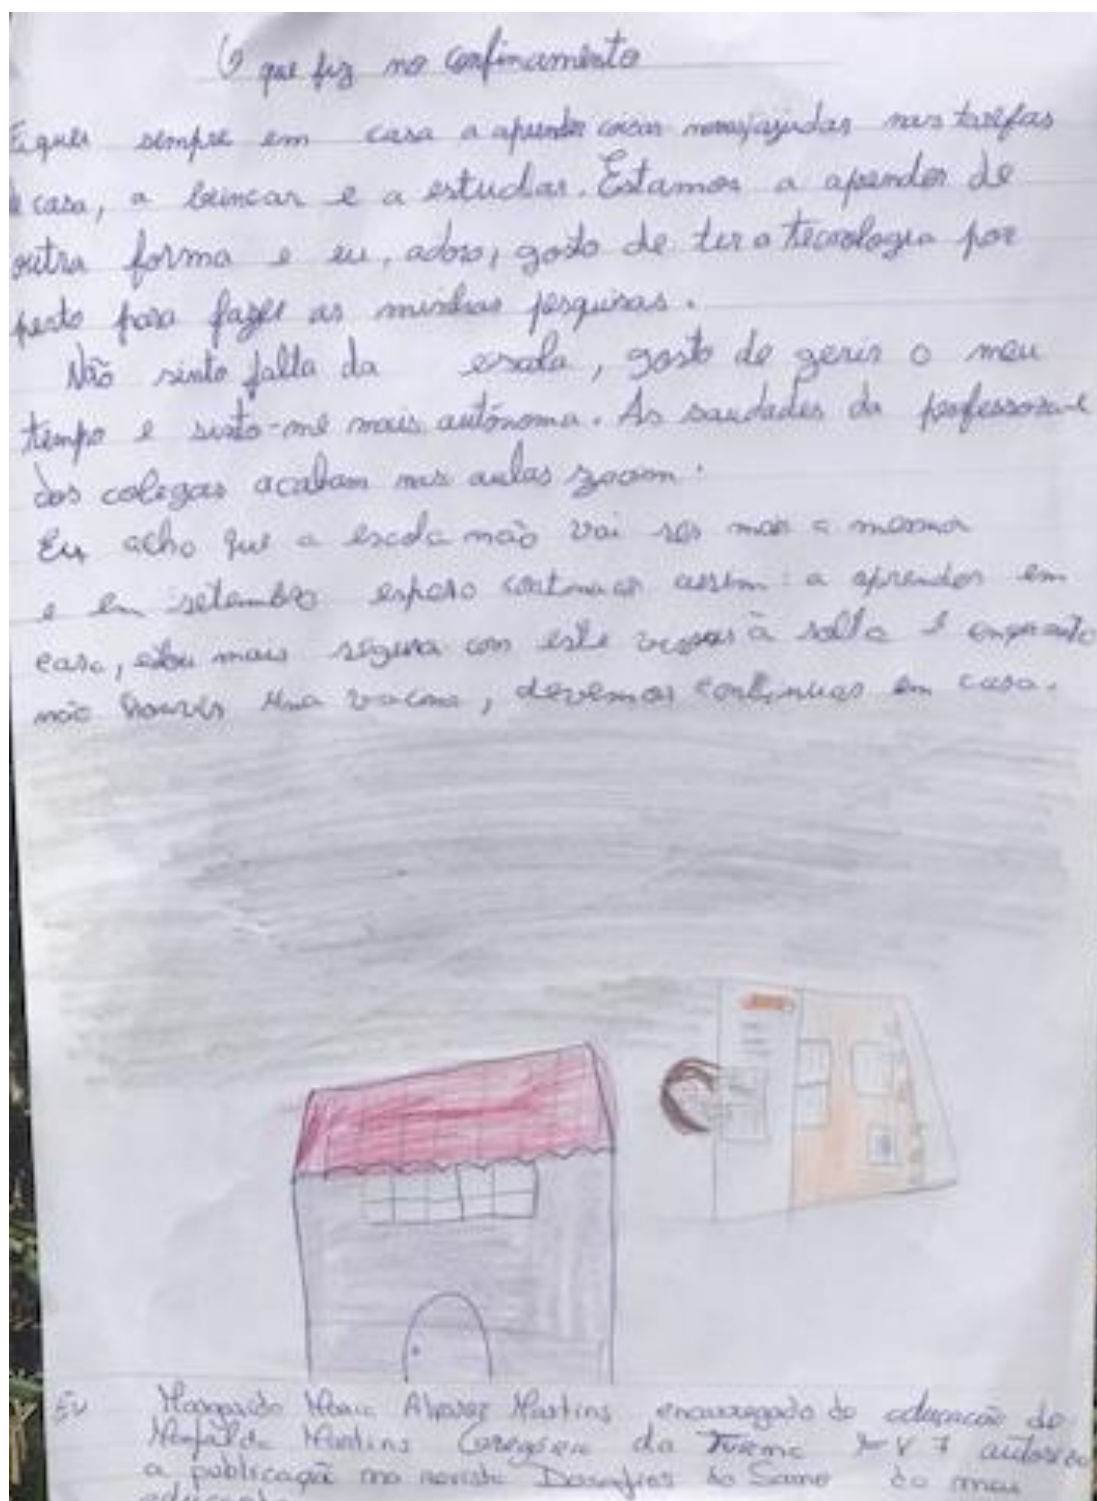 O que fiz no confinamento
Fiquei sempre em casa a aprender coisas novas, ajudar nas tarefas
de casa, a brincar e a estudar. Estamos a aprender de
outra forma e eu, adoro, gosto de ter a tecnologia por
perto para fazer as minhas pesquisas.
Não sinto falta da escola, gosto de gerir o meu
tempo e sinto-me mais autónoma. As saudades da professora e
dos colegas acabam nas aulas zoom.
Eu acho que a escola não vai ser mais a mesma
e em setembro espero continuar assim: a aprender em
casa, estou mais segura com este vírus à solta e enquanto
não houver uma vacina, devemos continuar em casa.
Eu Maria Alvarez Martins encarregado de educação de
Mafalda Martins da Turma V 7 autorizo
a publicação na revista Desafios do meu